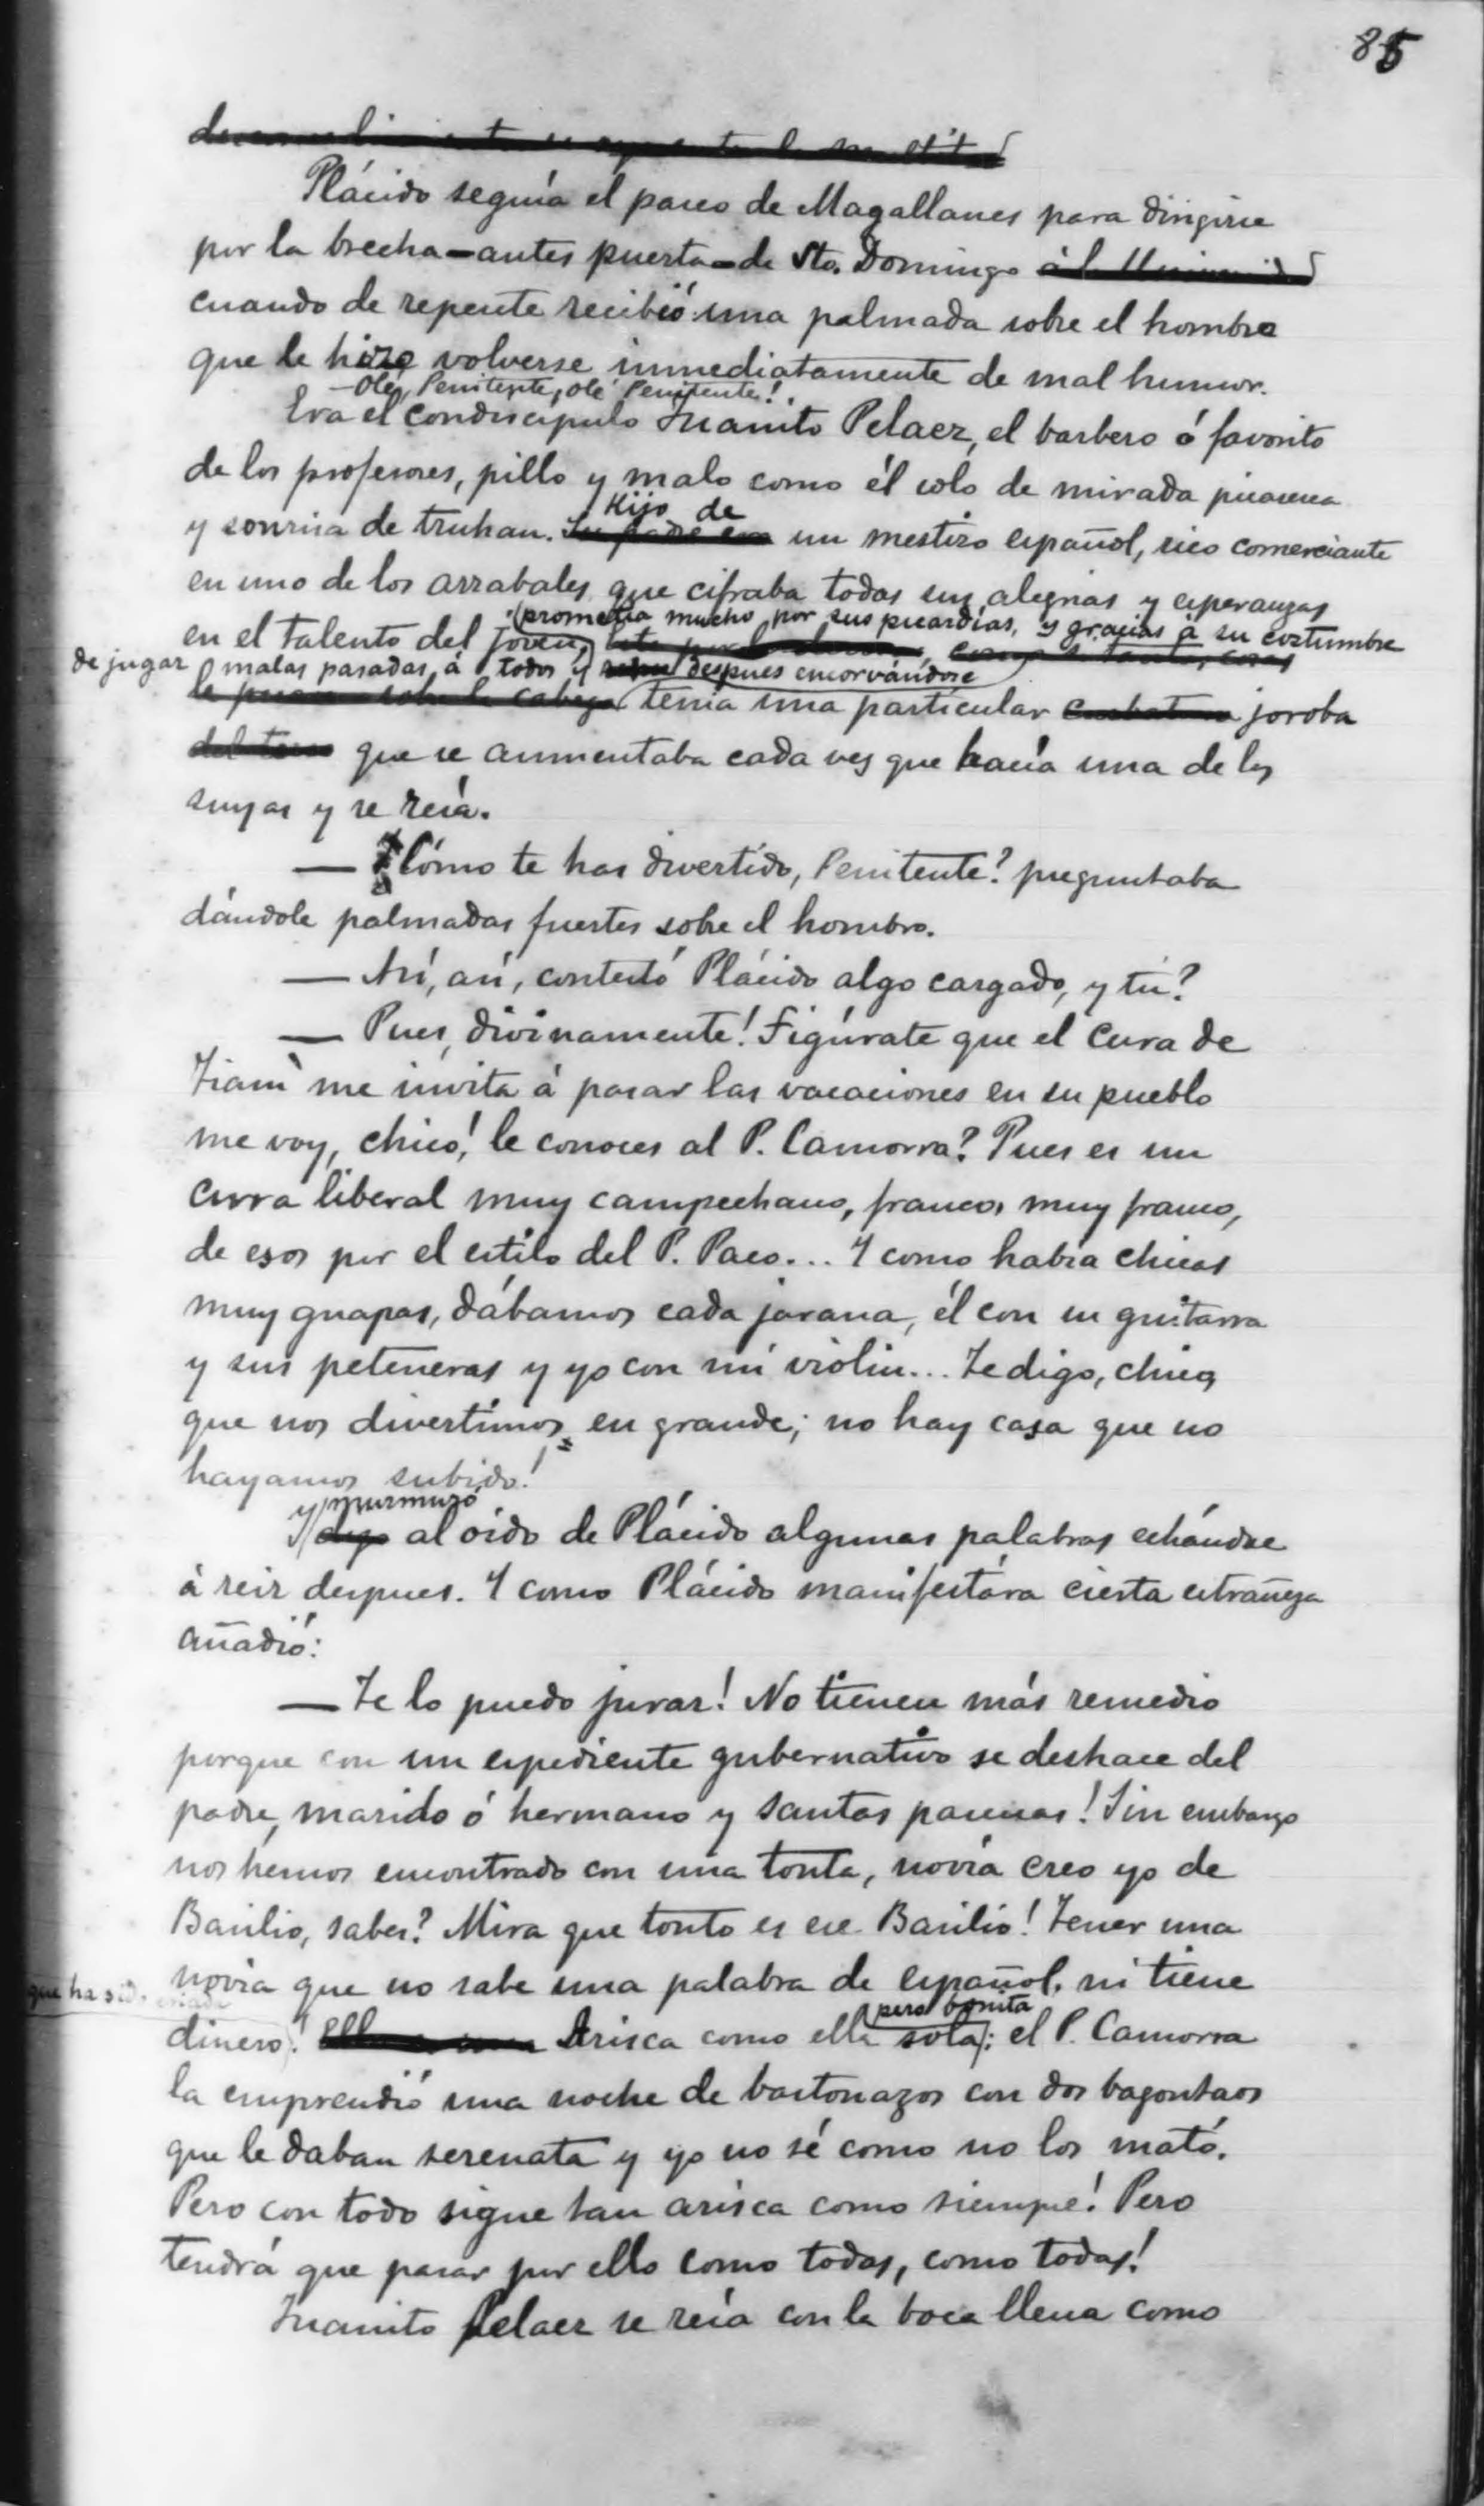 85
Plácido seguía el paseo de Magallanes para dirigirse
por la brecha - antes puerta - de Sto. Domingo
cuando de repente recibió una palmada sobre el hombro
que le hizo volverse inmediatamente de mal humor.
- Olé, Penitente, olé Penitente!
Era el condiscípulo Juanito Pelaez, el barbero ó favorito
de los profesores, pillo y malo como él solo de mirada picaresca
y sonrisa de truhan. Hijo de un mestizo español, rico comerciante
en uno de los arrabales que cifraba todas sus alegrias y esperanzas
en el talento del joven, promedia mucho por sus picardías, y gracias á su coztumbre
de jugar malas pasadas á todos y despues encorvándose
tenia una particular joroba
que se aumentaba cada vez que hacía una de las
suyas y se reía.
— Cómo te has divertido, Penitente? preguntaba
dándole palmadas fuertes sobre el hombro.
— Así, así, contestó Plácido algo cargado, y tú?
— Pues, divinamente! Figúrate que el cura de
Tianì me invita á pasar las vacaciones en su pueblo
me voy, chico! le conoces al P. Camorra? Pues es un
cura liberal muy campechano, franco, muy franco,
de esos por el estilo del P. Paco... Y como había chicas
muy guapas, dábamos cada jarana, él con su guitarra
y sus peteneras y yo con mi violin... Te digo, chico,
que nos divertimos en grande; no hay casa que no
hayamos subido!
y murmuró al oido de Plácido algunas palabras echándose
á reir despues. Y como Plácido manifestára cierta estrañeza
añadió:
— Te lo puedo jurar! No tienen más remedio
porque con un espediente gubernativo se deshace del
padre, marido ó hermano y santas pascuas! Sin embargo
nos hemos encontrado con una tonta, novia creo yo de
Basilio, sabes? Mira que tonto es ese Basilio! Tener una
novia que no sabe una palabra de español, ni tiene
dinero, que ha sido criada! Arisca como ella sola, pero bonita: el P. Camorra
la emprendió una noche de bastonazos con dos bagontaos
que le daban serenata y yo no sé como no los mató.
Pero con todo sigue tan arisca como siempre! Pero
tendrá que pasar por ello como todas, como todas!
Juanito Pelaez se reía con la boca llena como